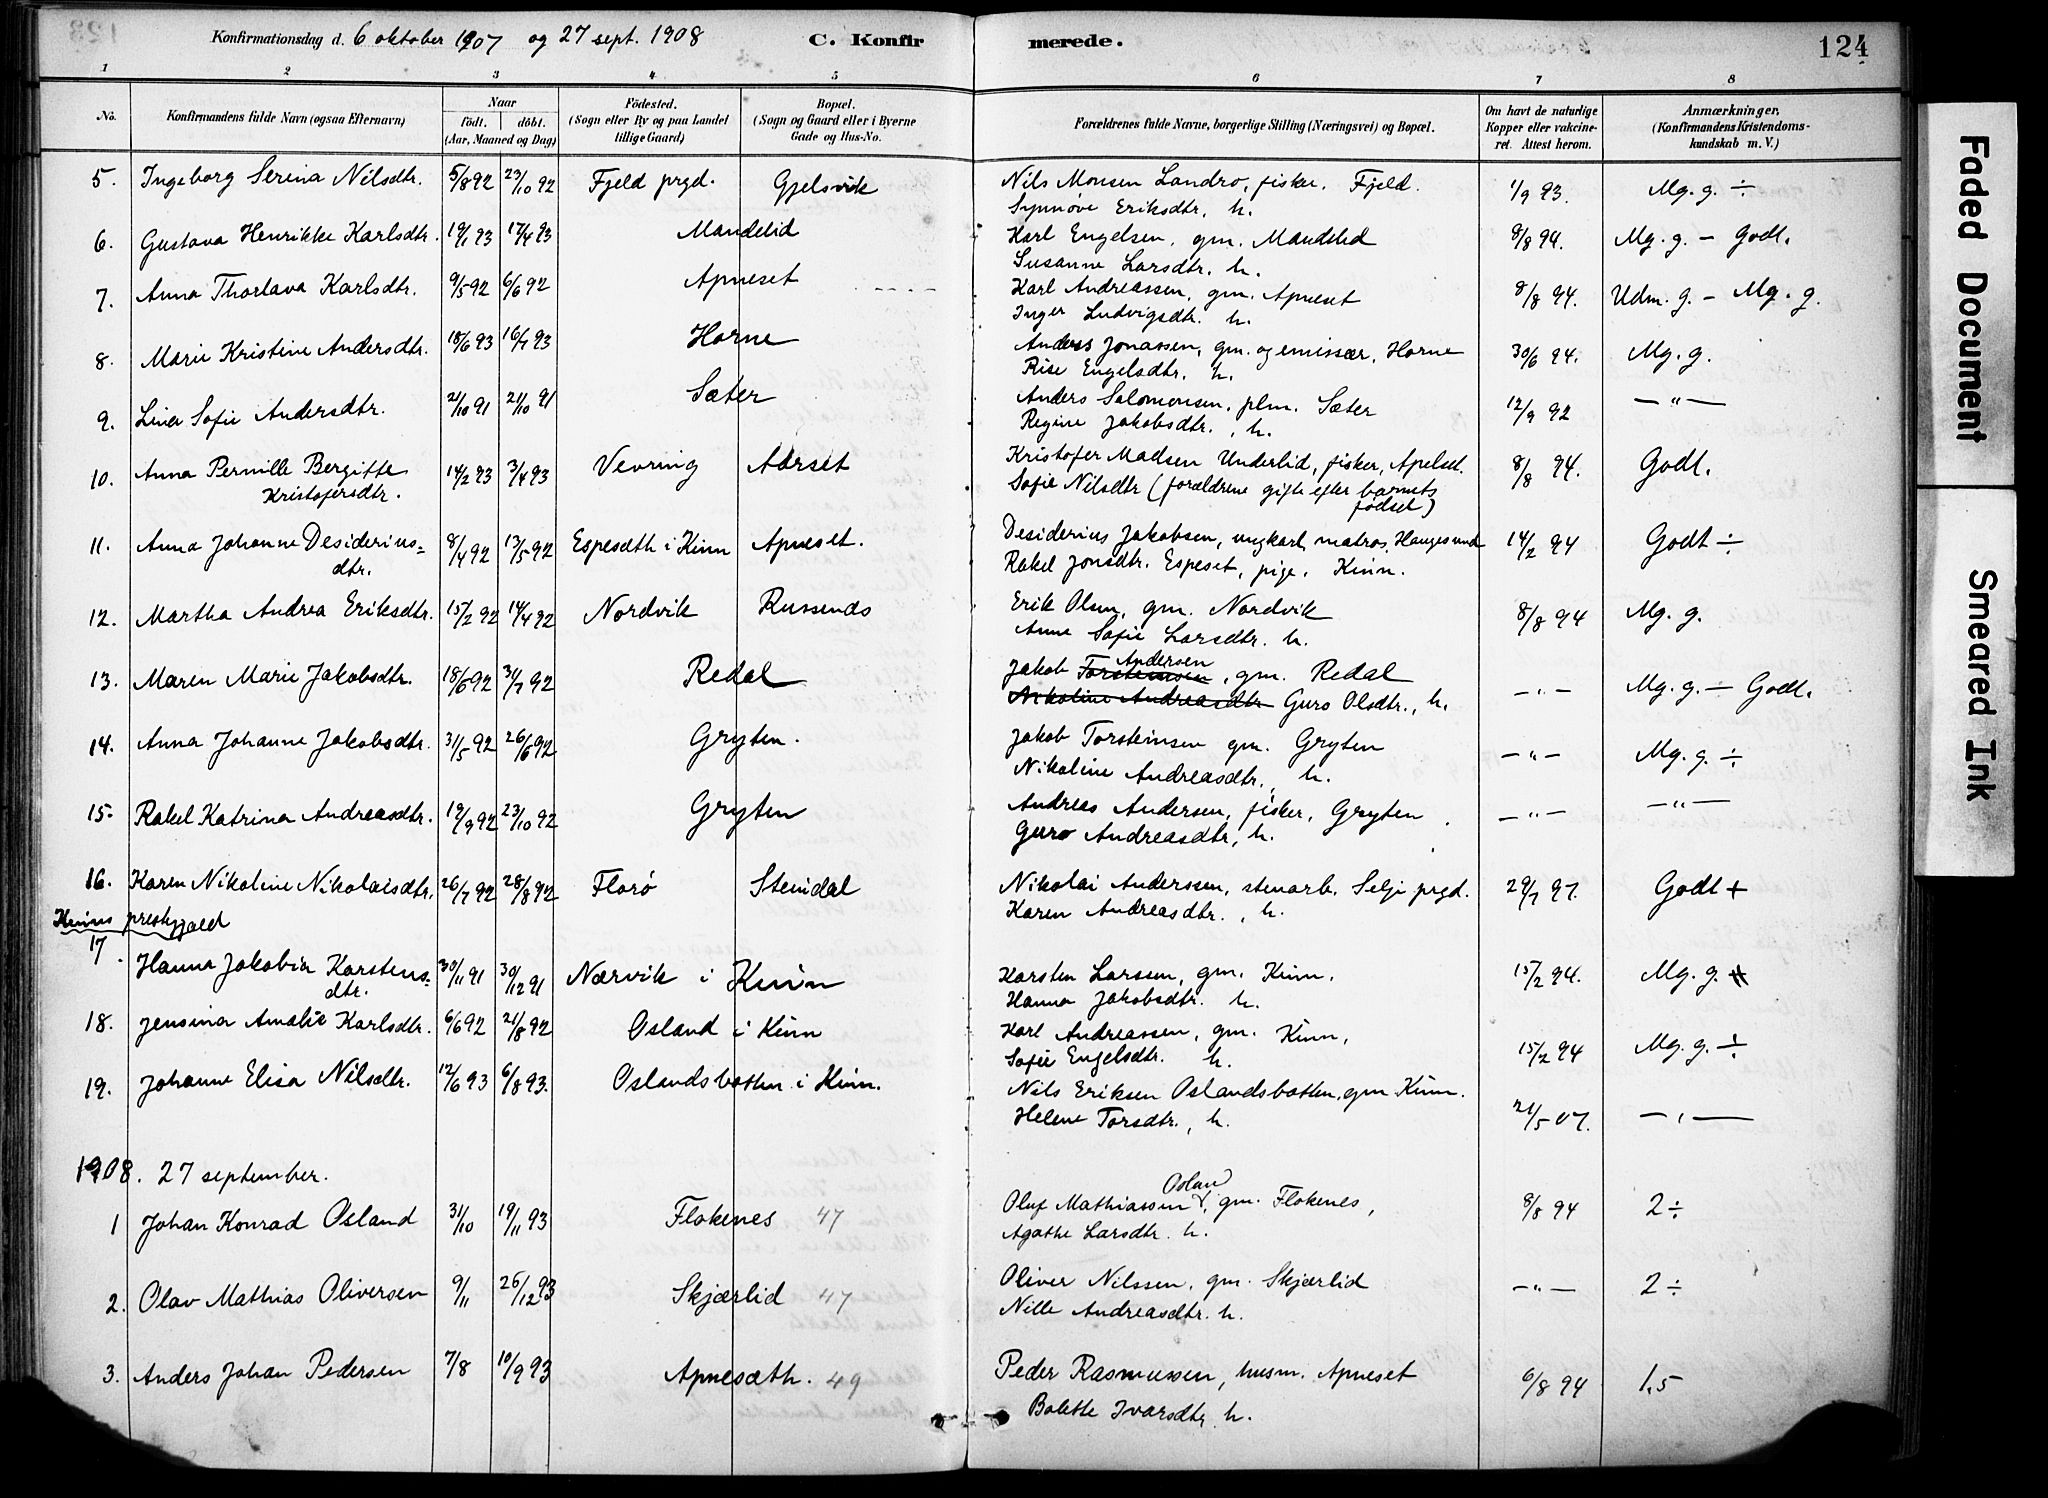 Konfirmationsdag d. 6 oktober 1907 og 27 sept. 1908 C. Konfirmerede. 124
1 2 3 4 5 6 7 8
No. Konfirmandens fulde Navn (ogsaa Efternavn) Naar födt. döbt. (Aar, Maaned og Dag) Födested. (Sogn eller By og paa Landet tillige Gaard) Bopæl. (Sogn og Gaard eller i Byerne Gade og Hus-No. Forældrenes fulde Navne, borgerlige Stilling (Næringsvei) og Bopæl. Om havt de naturlige Kopper eller vakcineret. Attest herom. Anmærkninger. (Konfirmandens Kristendomskundskab m. V.)
5. Ingeborg Serina Nilsdtr. 5/8 92 23/10 92 Fjeld prgd. Gjelsvik Nils Monsen Landro, fisker, Fjeld. 1/9 93. Mg. g. ÷
Synnøve Eriksdtr. h.
6. Gustava Henrikke Karlsdtr. 19/1 93 17/4 93 Mandelid Karl Engelsen, gm. Mandelid 8/8 94. Mg. g. – Godt.
Susanne Larsdtr. h.
7. Anna Thorlava Karlsdtr. 9/5 92 6/6 92 Apneset Karl Andreassen, gm. Apneset 8/8 94. Udm. g. – Mg. g.
Inger Ludvigsdtr. h.
8. Marie Kristine Andersdtr. 18/6 93 16/7 93 Horne Anders Jonassen, gm. og emissær, Horne 30/6 94. Mg. g.
Rise Engelsdtr. h.
9. Lina Sofie Andersdtr. 21/10 91 21/10 91 Sæter Anders Salomonsen, plm. Sæter 12/9 92 – " –
Regine Jakobsdtr., h.
10. Anna Pernille Bergitte 14/2 93 3/4 93 Vevring Aarset Kristofer Madsen Underlid, fisker, Apelset. 8/8 94. Godt.
Kristofersdtr. Sofie Nilsdtr (forældrene gifte efter barnets
fødsel)
11. Anna Johanne Desiderius= 8/4 92 13/5 92 Espesæth i Kinn Apneset. Desiderius Jakobsen, ungkarl, matros, Haugesund 14/2 94 Godt ÷
dtr. Rakel Jonsdtr. Espeset, pige, Kinn.
12. Martha Andrea Eriksdtr. 15/2 92 14/4 92 Nordvik Russenes Erik Olsen, gm. Nordvik 8/8 94 Mg. g.
Anne Sofie Larsdtr. h.
13. Maren Marie Jakobsdtr. 18/6 92 31/7 92 Redal Jakob Torsteinsen Andersen, gm. Redal – " – Mg. g. – Godt.
Nikoline Andreasdtr Guro Olsdtr., h.
14. Anna Johanne Jakobsdtr. 31/5 92 26/6 92 Gryten. Jakob Torsteinsen gm. Gryten – " – Mg. g. ÷
Nikoline Andreasdtr., h.
15. Rakel Katrina Andreasdtr. 19/9 92 23/10 92 Gryten Andreas Andersen, fisker, Gryten. – " – – " –
Guro Andreasdtr., h.
16. Karen Nikoline Nikolaisdtr. 26/7 92 28/8 92 Florø Steindal Nikolai Anderssen, stenarb. Selje prgd. 29/7 97. Godt +
Karen Andreasdtr., h.
Kinns prestegjæld
17. Hanna Jakobia Karstens= 30/11 91 30/12 91 Nærvik i Kinn Karsten Larssen, gm. Kinn. 15/2 94. Mg. g.
dtr. Hanna Jakobsdtr. h.
18. Jensina Amalie Karlsdtr. 6/6 92 21/8 92 Osland i Kinn Karl Andreassen, gm. Kinn, 15/2 94 Mg. g. ÷
Sofie Engelsdtr. h.
19. Johanne Elisa Nilsdtr. 12/6 93 6/8 93. Oslandsbotten i Kinn. Nils Eriksen Oslandsbotten, gm Kinn. 21/5 07. – " –
Helene Torsdtr., h.
1908. 27 september.
1 Johan Konrad Osland 31/10 19/11 93 Flokenes 47 Oluf Mathiassen Osland, gm. Flokenes, 8/8 94 2÷
Agathe Larsdtr. h.
2. Olav Mathias Oliversen 9/11 26/12 93 Skjærlid 47 Oliver Nilssen, gm. Skjærlid – " – 2÷
Nille Andreasdtr. h.
3. Anders Johan Pedersen 7/8 10/9 93 Apnesæth. 49 Peder Rasmussen, husm. Apneset 6/8 94 1,5
Bolette Ivarsdtr. h.
Faded Document
Smeared Ink